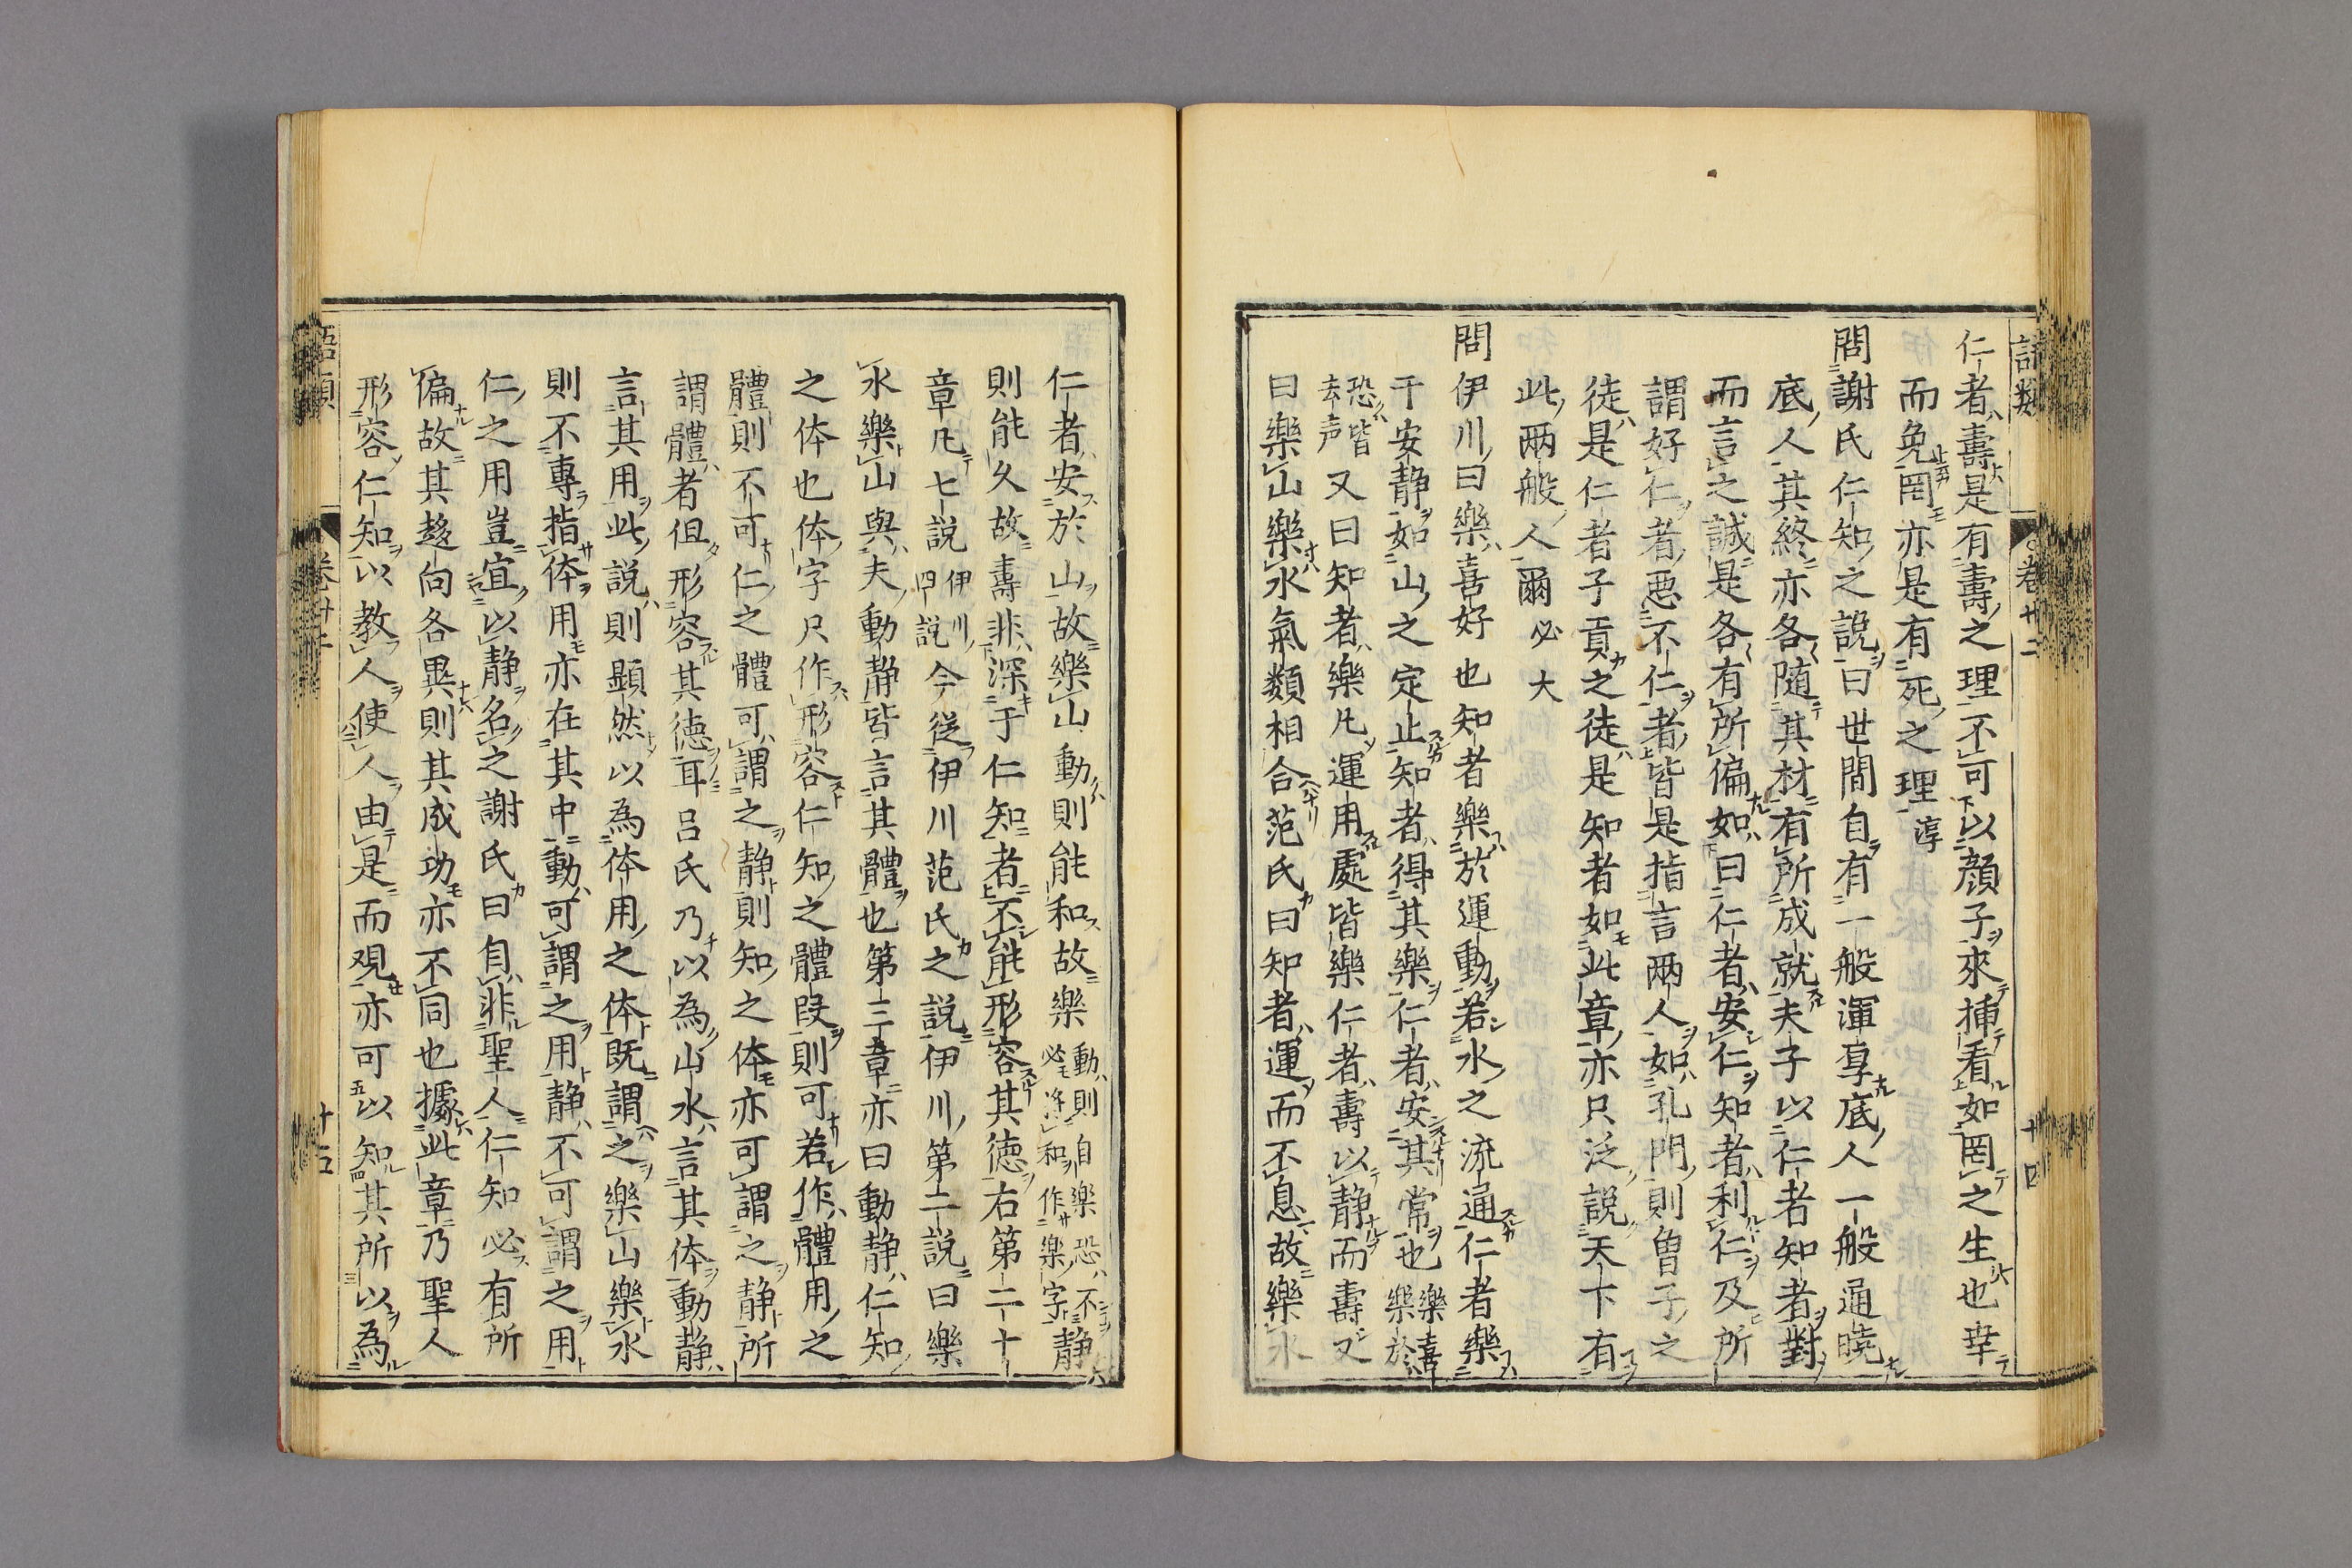 語類
卷廿二
十四
仁者壽是有壽之理不可以顔子來挿看如罔之生也幸
而免罔亦是有死之理淳
問謝氏仁知之說曰世間自有一般渾厚底人一般通曉
底人其終亦各随其材有所成就夫子以仁者知者對
而言之誠是各有所偏如曰仁者安仁知者利仁及所
謂好仁者惡不仁者皆是指言兩人如孔門則曾子之
徒是仁者子貢之徒是知者如此章亦只泛說天下有
此兩般人爾必大
問伊川曰樂喜好也知者樂於運動若水之流通仁者樂
于安靜如山之定止知者得其樂仁者安其常也樂喜樂於
恐皆去声又曰知者樂凡運用處皆樂仁者壽以靜而壽又
曰樂山樂水氣類相合范氏曰知者運而不息故樂水
仁者安於山故樂山動則能和故樂動則自樂恐不必將和作樂字靜
則能久故壽非深于仁知者不能形容其德右第二十
章凡七說伊川四說今從伊川范氏之說伊川第二說曰樂
水樂山與夫動靜皆言其體也第三章亦曰動靜仁知
之体也体字只作形容仁知之體段則可若作體用之
體則不可仁之體可謂之靜則知之体亦可謂之靜所
謂體者但形容其德耳呂氏乃以為山水言其体動靜
言其用此說則顯然以為体用之体既謂之樂山樂水
則不專指体用亦在其中動可謂之用靜不可謂之用
仁之用豈宜以靜名之謝氏曰自非聖人仁知必有所
偏故其趍向各異則其成功亦不同也據此章乃聖人
形容仁知以教人使人由是而觀亦可以知其所以為
語類
卷廿二
十五